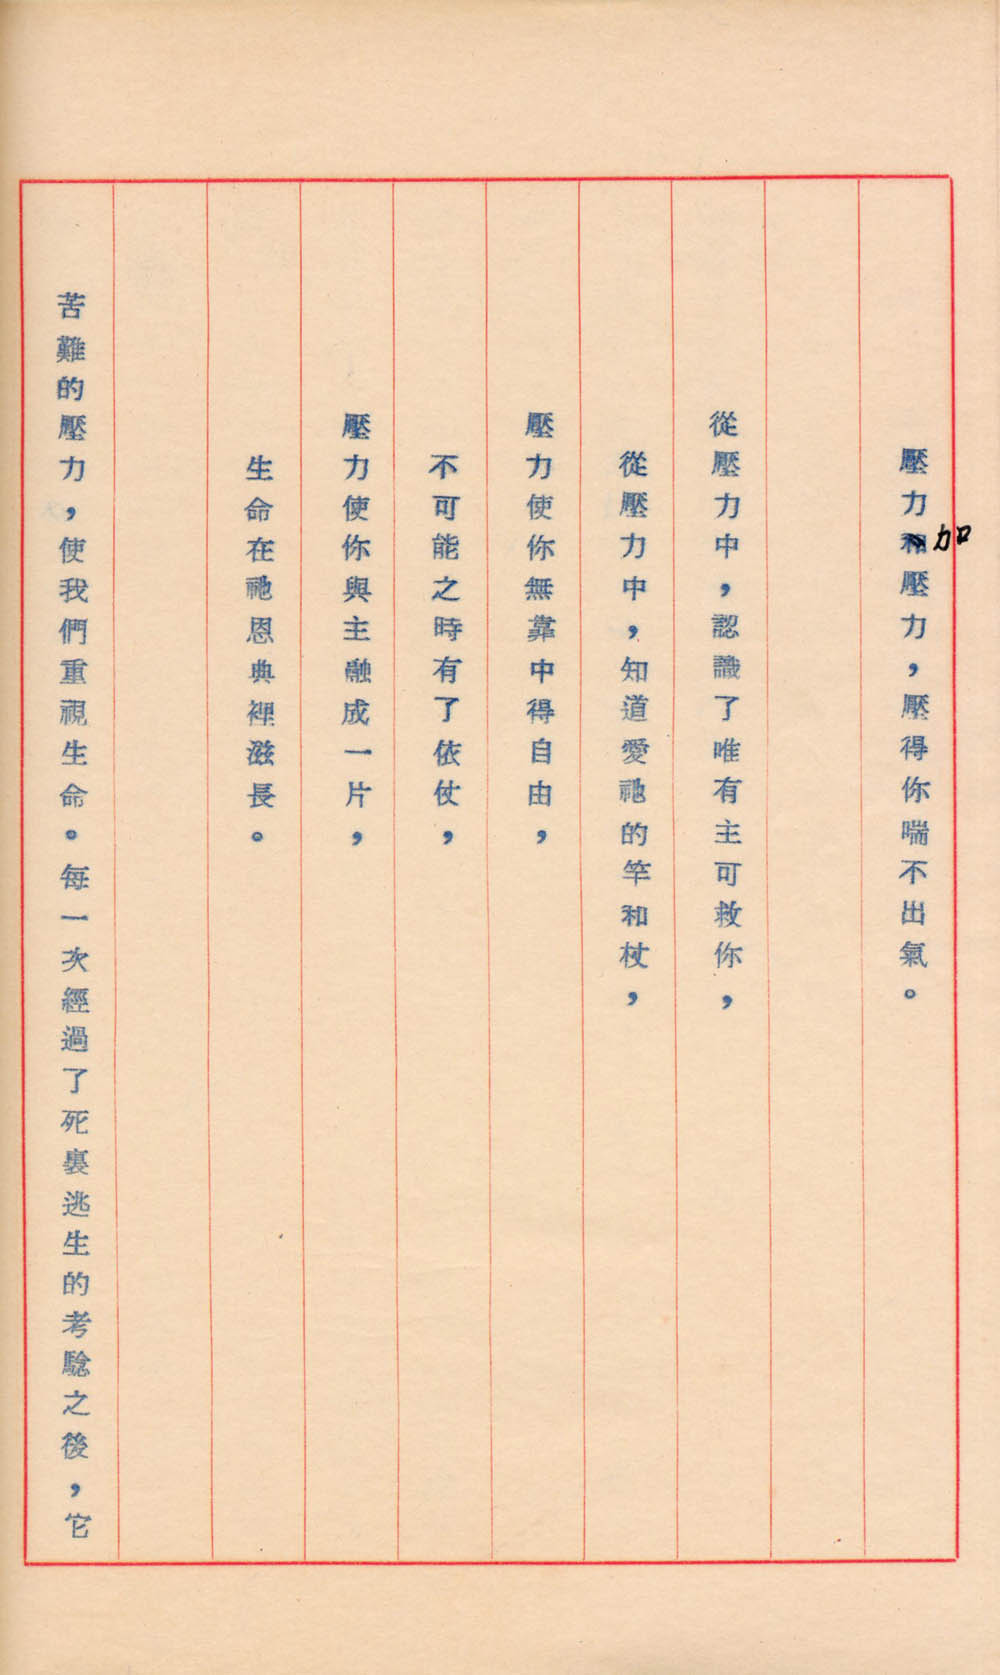 壓力加壓力，壓得你喘不出氣。
從壓力中，認識了唯有主可救你，
從壓力中，知道愛祂的竿和杖，
壓力使你無靠中得自由，
不可能之時有了依仗，
壓力使你與主融成一片，
生命在祂恩典裡滋長。
苦難的壓力，使我們重視生命。每一次經過了死裏逃生的考驗之後，它